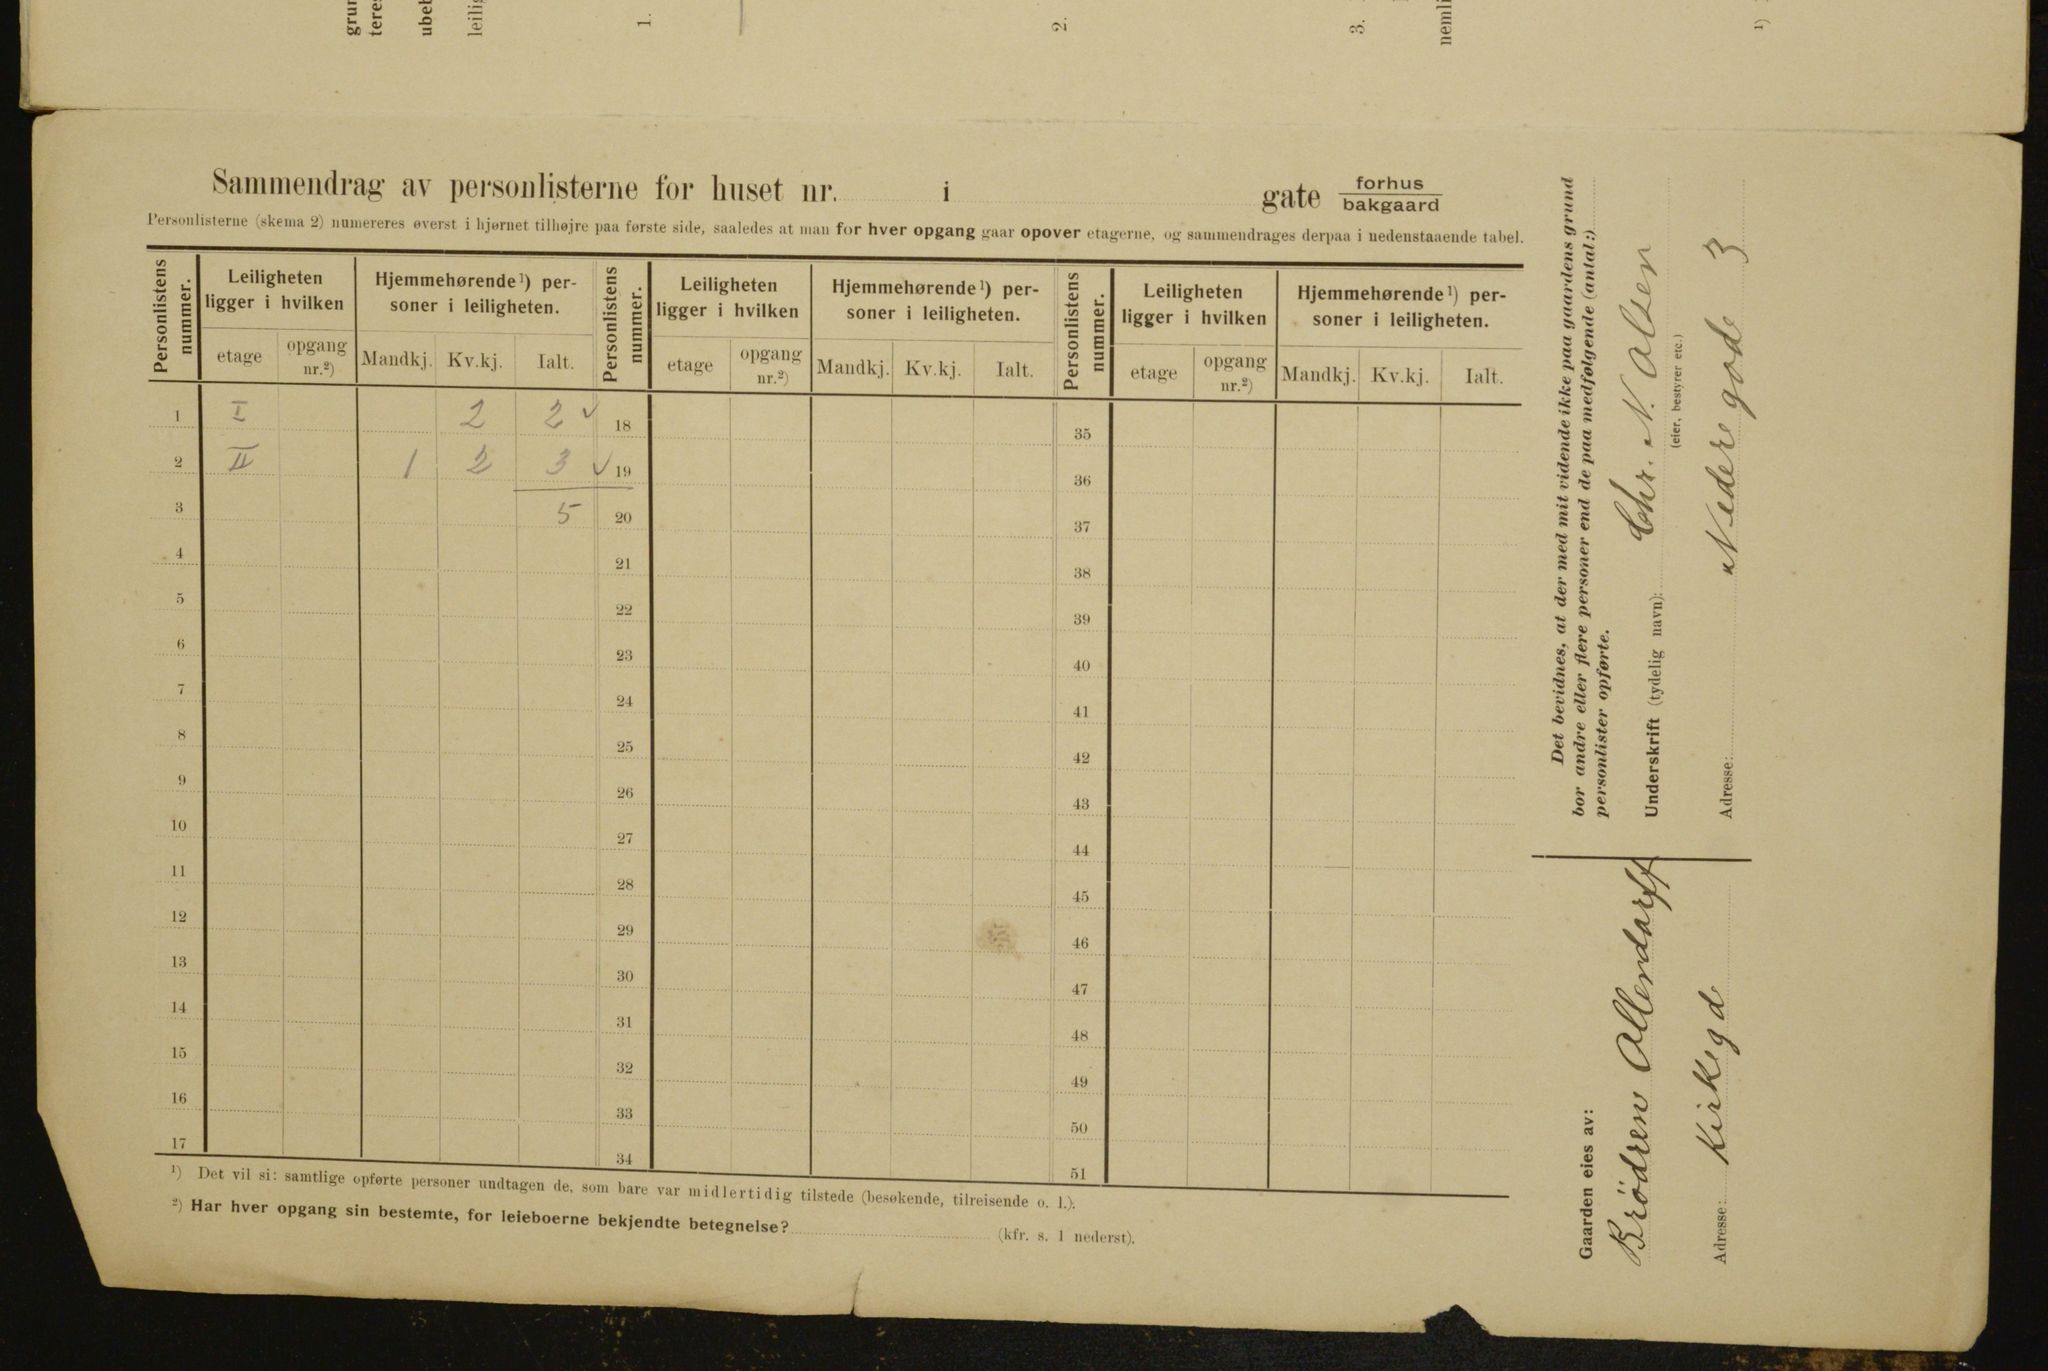 grun
teres
ubeb
leilig
1.
2.
3.
nemli
1)
Sammendrag av personlisterne for huset nr. i gate forhus
bakgaard
Personlisterne (skema 2) numereres øverst i hjørnet tilhøjre paa første side, saaledes at man for hver opgang gaar opover etagerne, og sammendrages derpaa i nedenstaaende tabel.
Personlistens nummer. Leiligheten ligger i hvilken Hjemmehørende 1) personer i leiligheten. Personlistens nummer. Leiligheten ligger i hvilken Hjemmehørende 1) personer i leiligheten. Personlistens nummer. Leiligheten ligger i hvilken Hjemmehørende 1) personer i leiligheten.
etage opgang nr.2) Mandkj. Kv.kj. Ialt. etage opgang nr.2) Mandkj. Kv.kj. Ialt. etage opgang nr.2) Mandkj. Kv.kj. Ialt.
1 I 2 2 ✓ 18 35
2 II 1 2 3 ✓ 19 36
3 5 20 37
4 21 38
5 22 39
6 23 40
7 24 41
8 25 42
9 26 43
10 27 44
11 28 45
12 29 46
13 30 47
14 31 48
15 32 49
16 33 50
17 34 51
1) Det vil si: samtlige opførte personer undtagen de, som bare var midlertidig tilstede (besøkende, tilreisende o. l.).
2) Har hver opgang sin bestemte, for leieboerne bekjendte betegnelse? (kfr. s. 1 nederst).
Det bevidnes, at der med mit vidende ikke paa gaardens grund
bor andre eller flere personer end de paa medfølgende (antal:)
personlister opførte.
Underskrift (tydelig navn): Chr. N. Olsen
(eier, bestyrer etc.)
Adresse: Nedregade 3
Gaarden eies av:
Brödren Allendarff
Adresse: Kirkegd